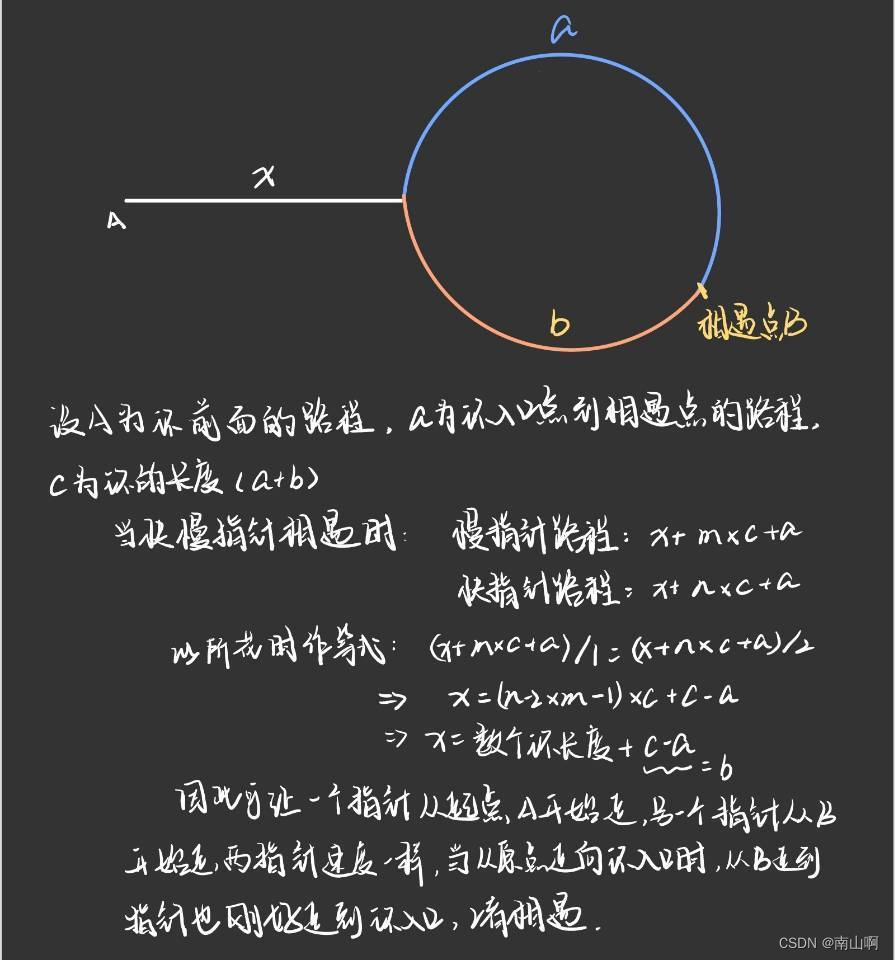 a
x
A
b
相遇点B
设A为环前面的路程，a为环入口点到相遇点的路程，
c为环的长度（a+b）
当快慢指针相遇时： 慢指针路程：x+m×c+a
快指针路程：x+n×c+a
以所花时作等式：(x+m×c+a)/1=(x+n×c+a)/2
=> x=(n-2×m-1)×c+c-a
=> x=数个环长度+c-a=b
因此可让一个指针从起点A开始走，另一个指针从B
开始走，两指针速度一样，当从原点走向环入口时，从B走到
指针也刚好走到环入口，相遇.
CSDN @南山啊